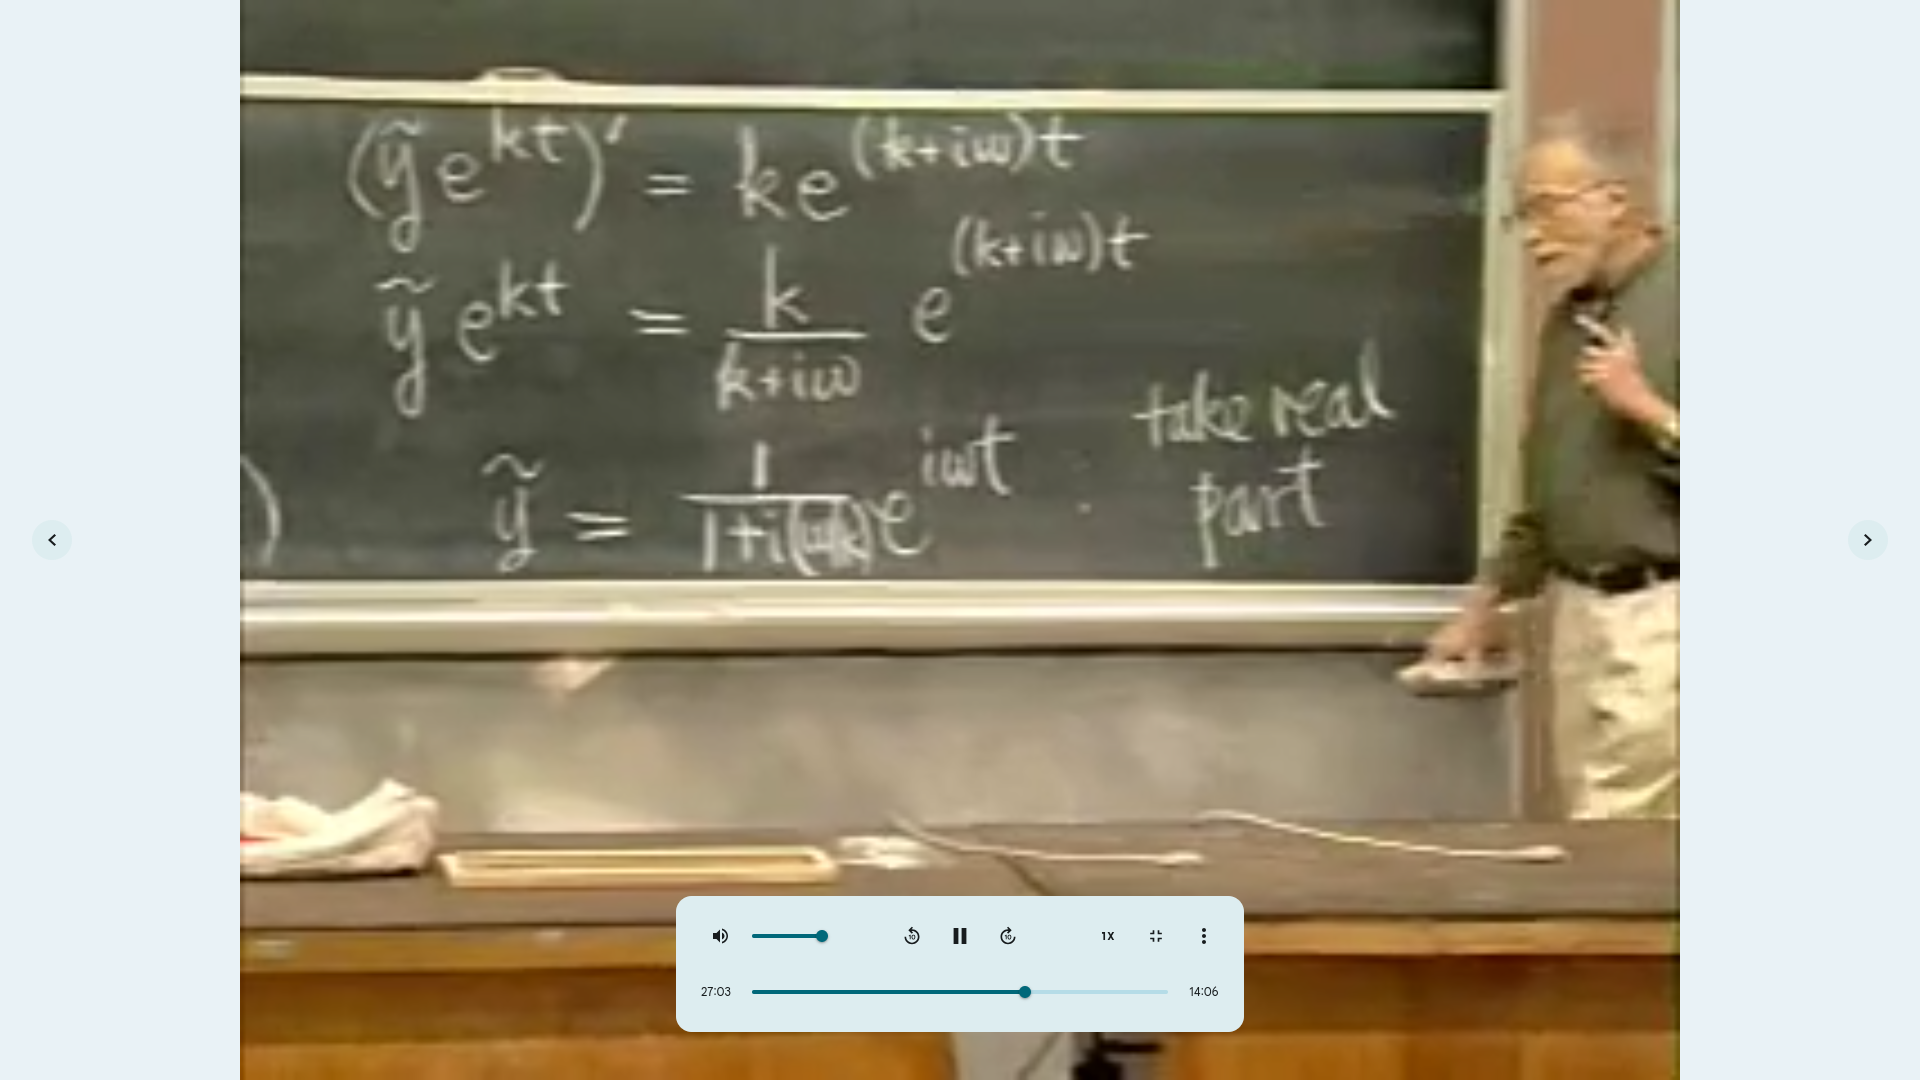 (ỹe^{kt})' = ke^{(k+iω)t}
ỹ e^{kt} = k/(k+iω) e^{(k+iω)t}
ỹ = 1/(1+i(ω/k)) e^{iωt} : take real
part
)
10
10
1X
27:03
14:06